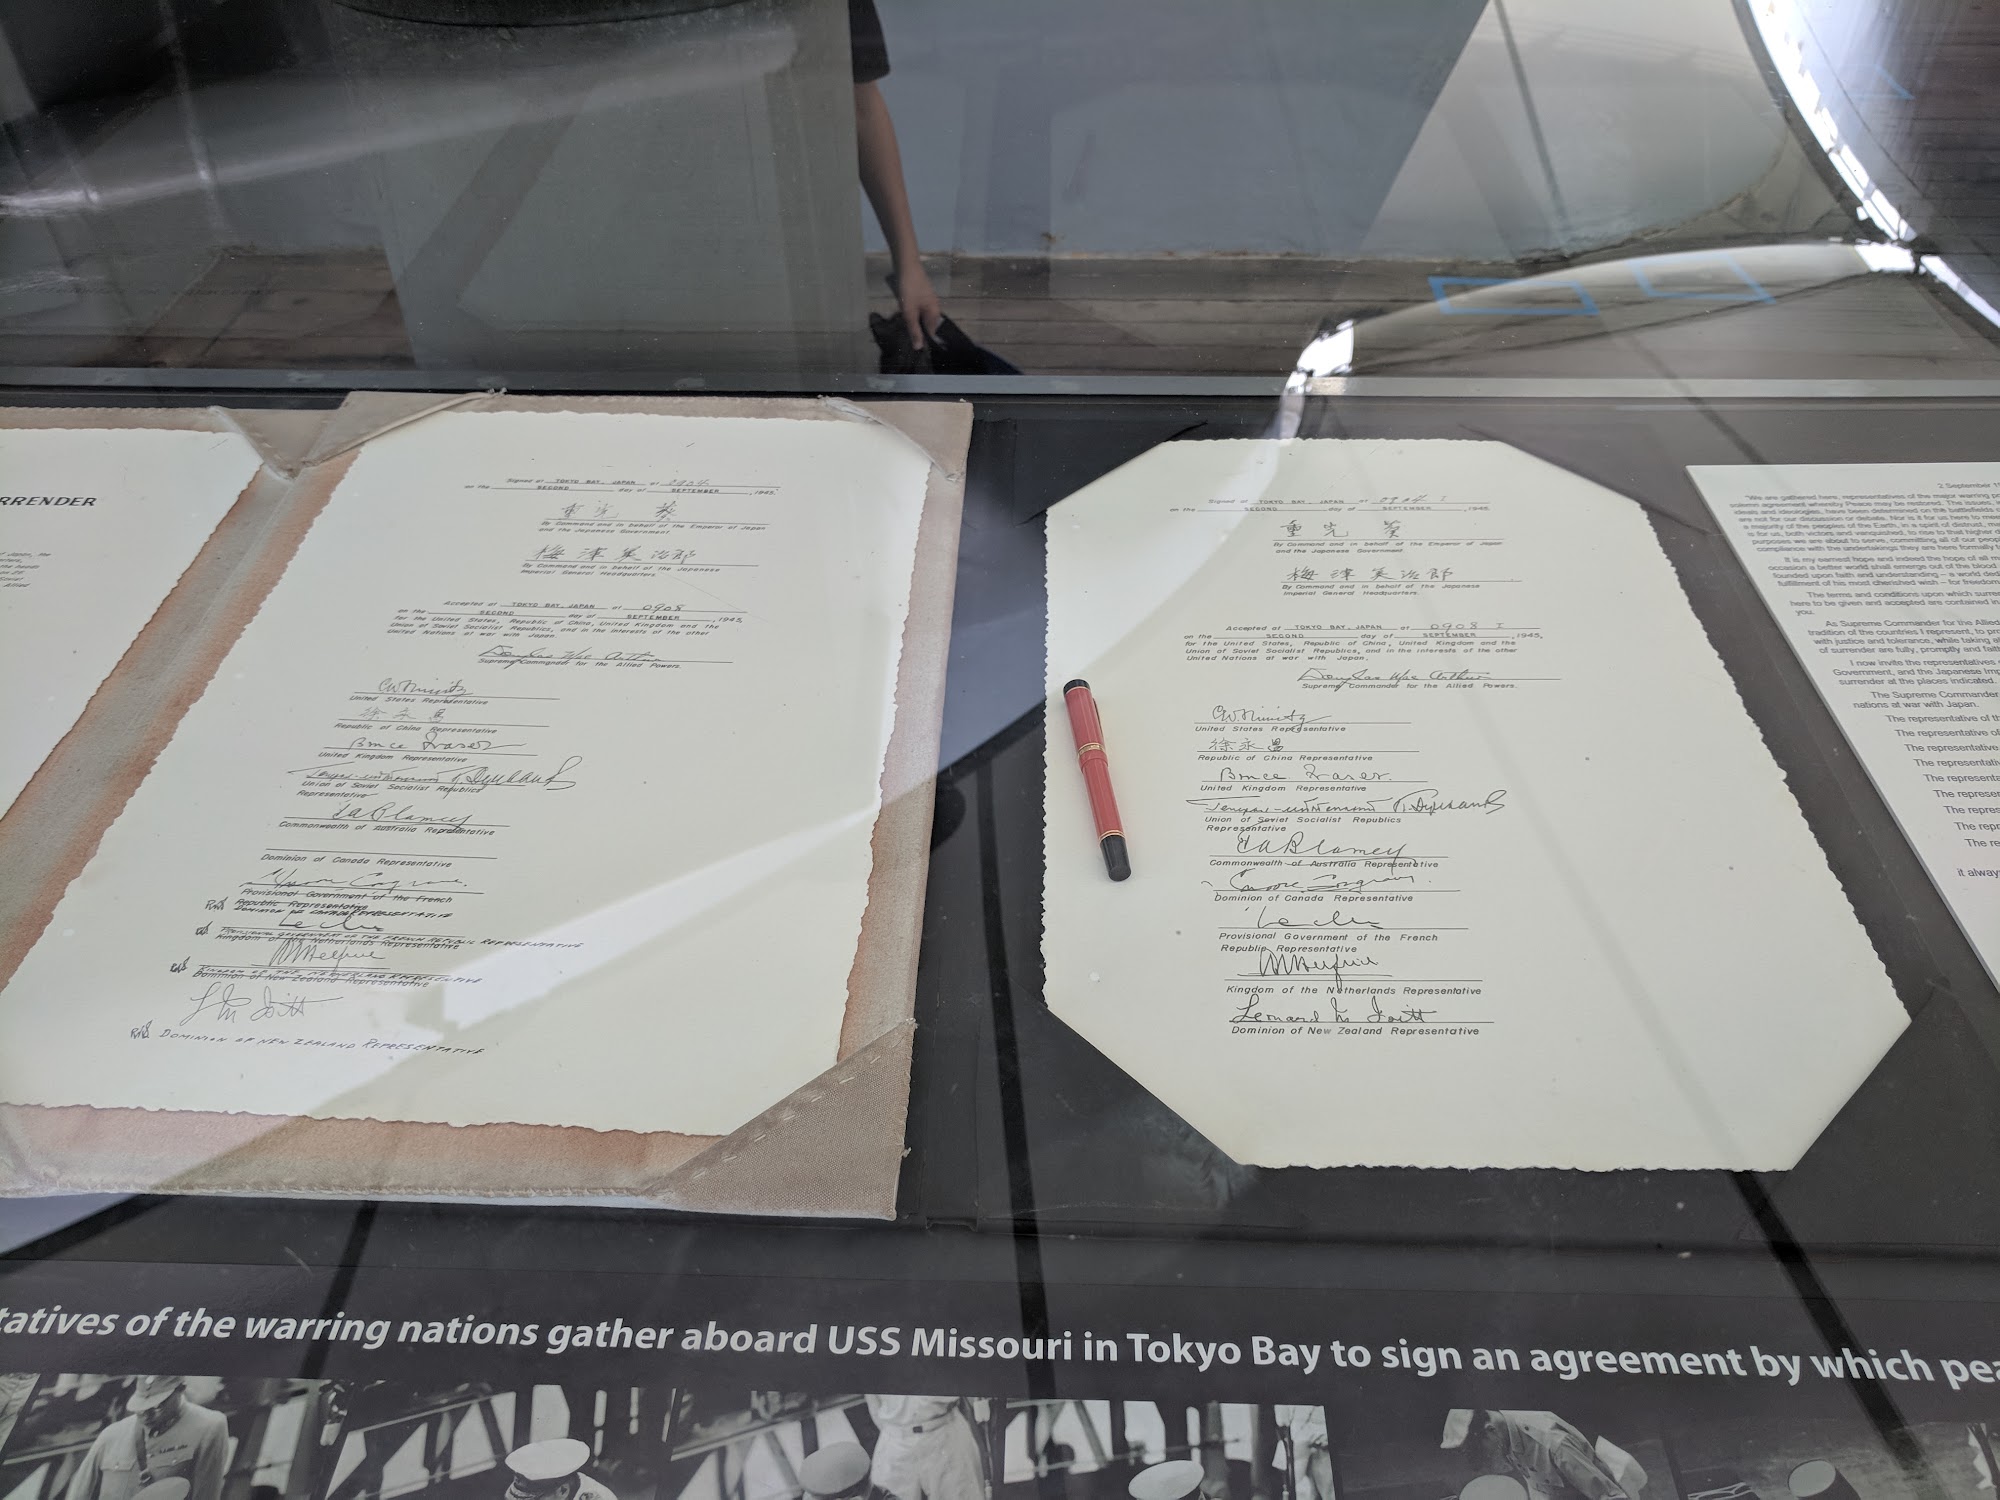 RRENDER
Signed at TOKYO BAY, JAPAN at 0904
on the SECOND day of SEPTEMBER, 1945.
重光 葵
By Command and in behalf of the Emperor of Japan
and the Japanese Government
梅津美治郎
By Command and in behalf of the Japanese
Imperial General Headquarters.
Accepted at TOKYO BAY, JAPAN at 0908
on the SECOND day of SEPTEMBER, 1945,
for the United States, Republic of China, United Kingdom and the
Union of Soviet Socialist Republics, and in the interests of the other
United Nations at war with Japan.
Douglas MacArthur
Supreme Commander for the Allied Powers.
C.W. Nimitz
United States Representative
徐永昌
Republic of China Representative
Bruce Fraser
United Kingdom Representative
Union of Soviet Socialist Republics
Representative
T.A. Blamey
Commonwealth of Australia Representative
Dominion of Canada Representative
Moore Cosgrave.
Provisional Government of the French
Republic Representative
DOMINION OF CANADA REPRESENTATIVE
Leclerc
PROVISIONAL GOVERNMENT OF THE FRENCH REPUBLIC REPRESENTATIVE
Kingdom of the Netherlands Representative
Helfrich
KINGDOM OF THE NETHERLAND REPRESENTATIVE
Dominion of New Zealand Representative
L M Isitt
DOMINION OF NEW ZEALAND REPRESENTATIVE
Signed at TOKYO BAY, JAPAN at 0904 I
on the SECOND day of SEPTEMBER, 1945.
重光 葵
By Command and in behalf of the Emperor of Japan
and the Japanese Government.
梅津美治郎
By Command and in behalf of the Japanese
Imperial General Headquarters.
Accepted at TOKYO BAY, JAPAN at 0908 I
on the SECOND day of SEPTEMBER, 1945,
for the United States, Republic of China, United Kingdom and the
Union of Soviet Socialist Republics, and in the interests of the other
United Nations at war with Japan.
Douglas MacArthur
Supreme Commander for the Allied Powers.
C.W. Nimitz
United States Representative
徐永昌
Republic of China Representative
Bruce Fraser.
United Kingdom Representative
Union of Soviet Socialist Republics
Representative
T.A. Blamey
Commonwealth of Australia Representative
Moore Cosgrave.
Dominion of Canada Representative
Leclerc
Provisional Government of the French
Republic Representative
Helfrich
Kingdom of the Netherlands Representative
Leonard M Isitt
Dominion of New Zealand Representative
2 September 1
"We are gathered here, representatives of the major warring p
solemn agreement whereby Peace may be restored. The issues, i
ideals and ideologies, have been determined on the battlefields o
are not for our discussion or debate. Nor is it for us here to me
a majority of the peoples of the Earth, in a spirit of distrust, ma
is for us, both victors and vanquished, to rise to that higher d
purposes we are about to serve, committing all of our peop
compliance with the undertakings they are here formally t
It is my earnest hope and indeed the hope of all m
occasion a better world shall emerge out of the blood
founded upon faith and understanding – a world ded
fulfillment of his most cherished wish – for freedom
The terms and conditions upon which surre
here to be given and accepted are contained in
you.
As Supreme Commander for the Allied
tradition of the countries I represent, to pr
with justice and tolerance, while taking al
of surrender are fully, promptly and faith
I now invite the representatives
Government, and the Japanese Imp
surrender at the places indicated.
The Supreme Commander
nations at war with Japan.
The representative of th
The representative of
The representative
The representativ
The representa
The represen
The repres
The repr
The re
it alway
tatives of the warring nations gather aboard USS Missouri in Tokyo Bay to sign an agreement by which pea